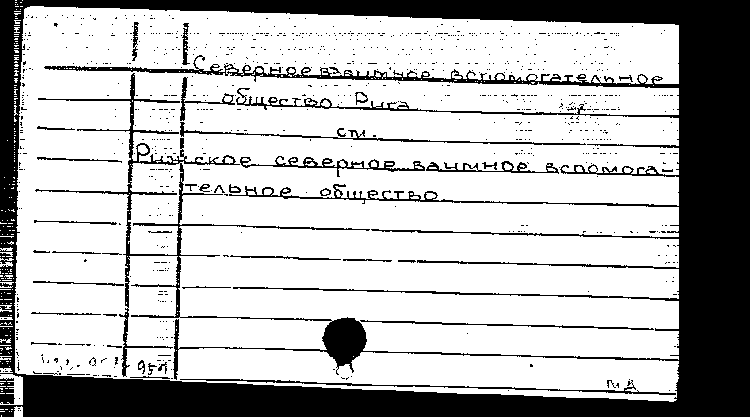 Северное взаимное вспомогательное
общество. Рига
см.
Рижское северное взаимное вспомога-
тельное общество.